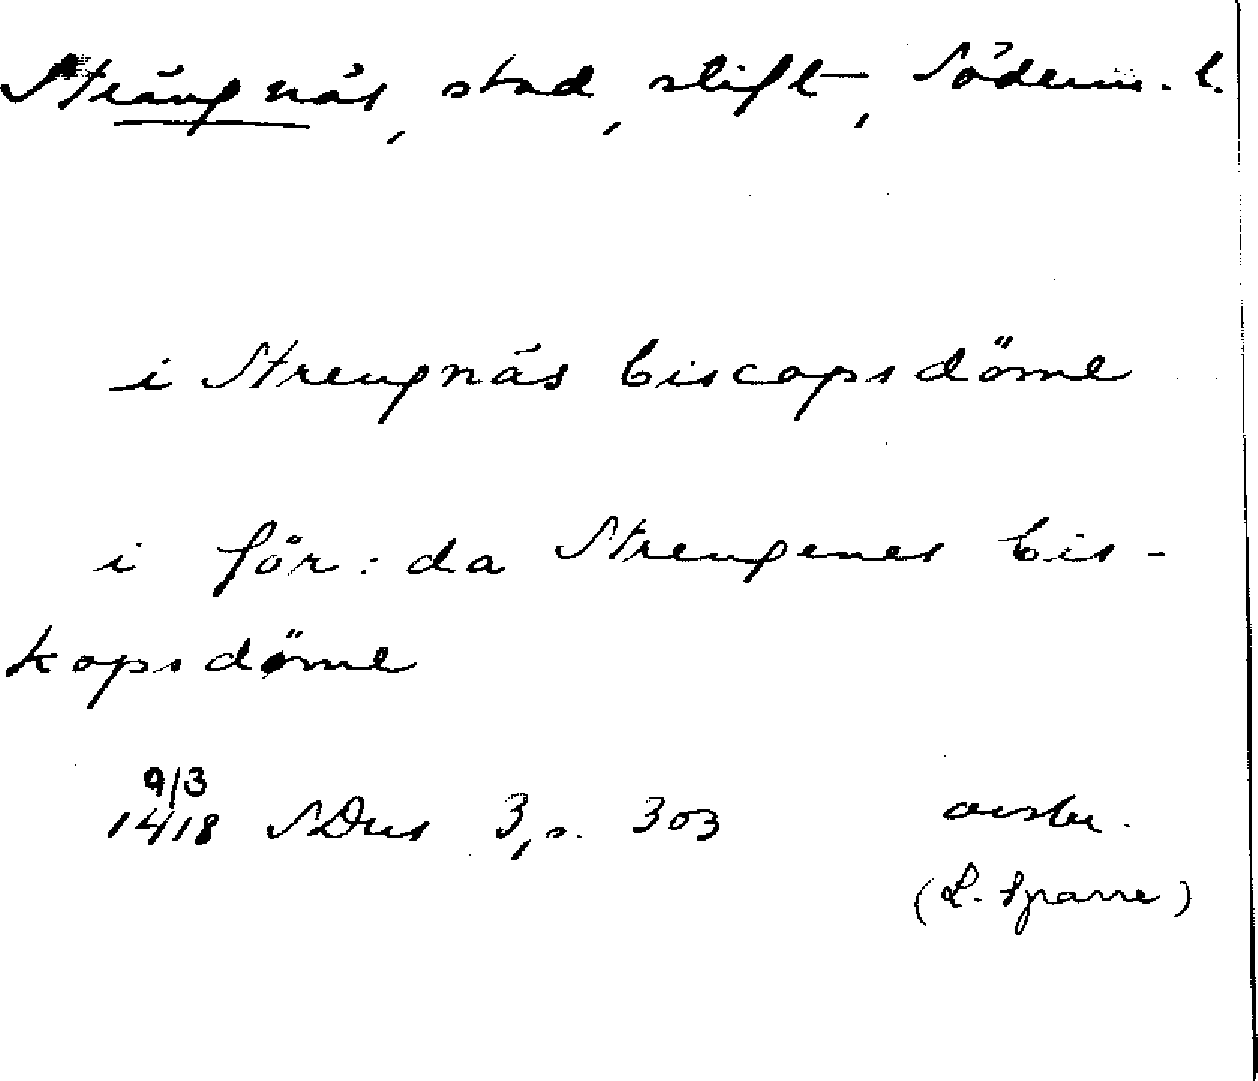 Strängnäs, stad, stift, Söderm. l.
i Strengnäs biscopsdöme
i för: da Strengenes bis-
kopsdöme
9/3
1418 SDns 3, s. 303 avskr.
(L. Sparre)